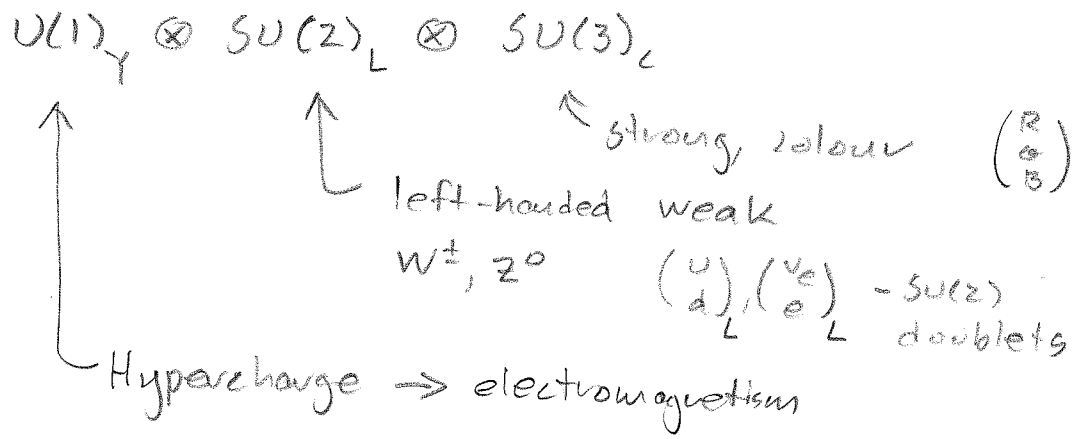 U(1)_Y ⊗ SU(2)_L ⊗ SU(3)_c
strong, colour (R G B)
left-handed weak
W±, Z⁰ (u d)_L, (νe e)_L - SU(2)
doublets
Hypercharge → electromagnetism